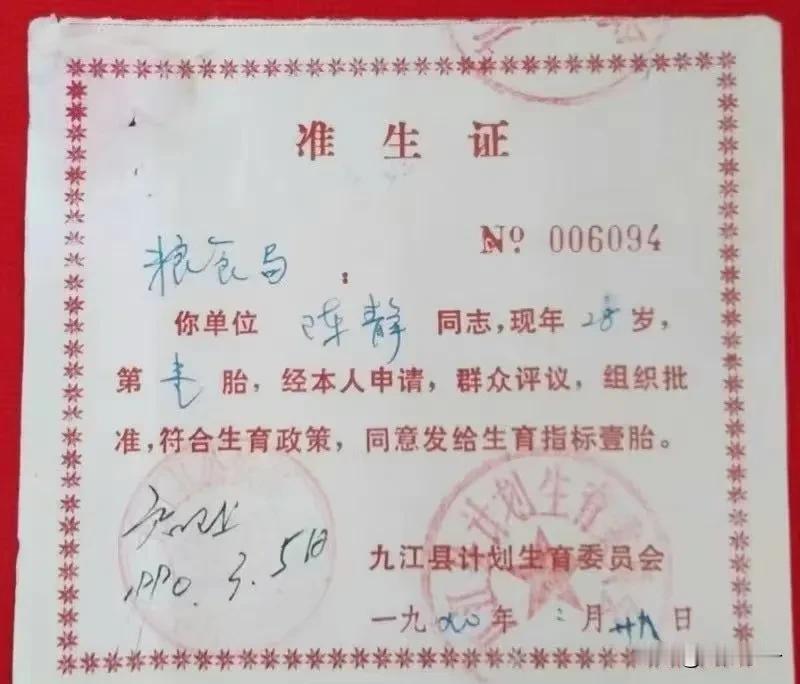 准生证
№ 006094
粮食局：
你单位 陈静 同志，现年 28 岁，
第 壱 胎，经本人申请，群众评议，组织批
准，符合生育政策，同意发给生育指标壹胎。
计划生育
1990.3.5日
九江县计划生育委员会
一九九〇年二月 日